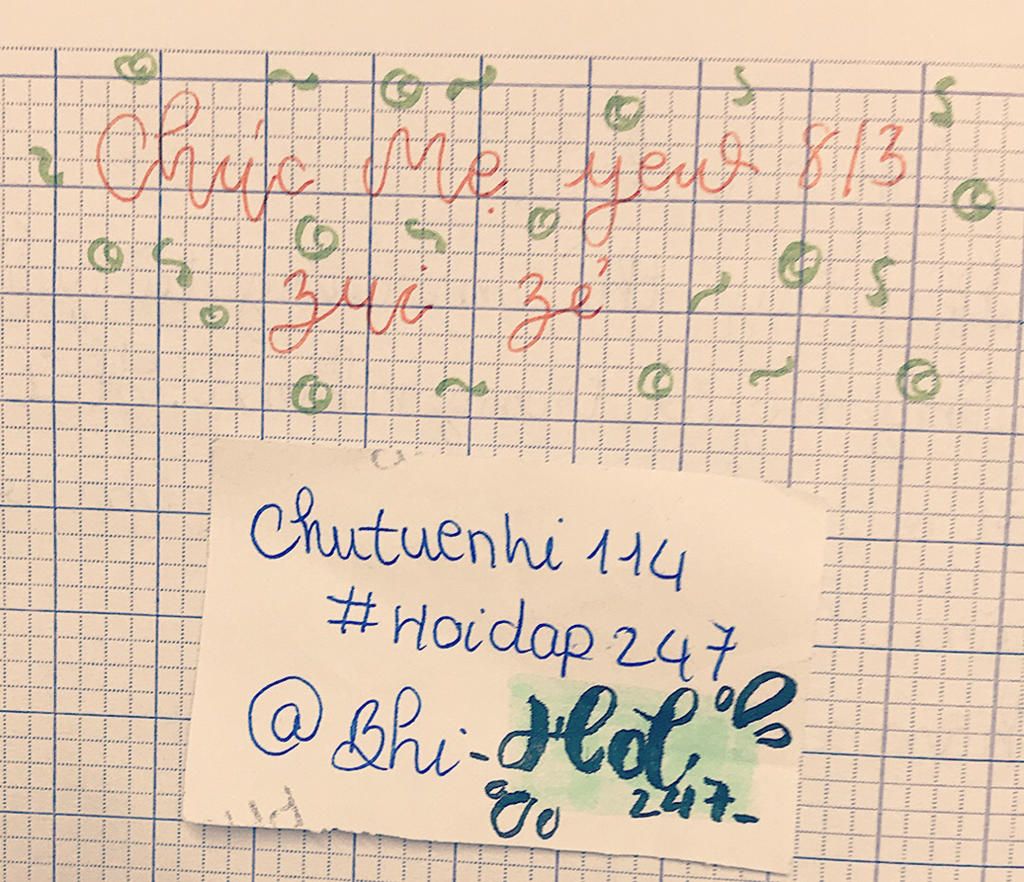 Chúc Mẹ yêu 8/3
zui zẻ
Chutuenhi 114
#Hoidap247
@Bhi-
247-